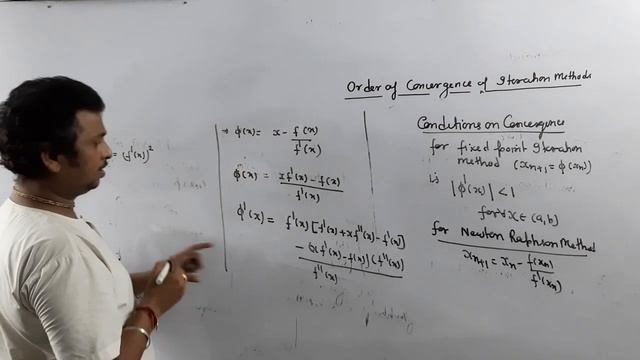 Order of Convergence of Iteration Methods
= (f'(x))²
⇒ φ(x) = x - f(x) / f'(x)
φ(x) = xf'(x) - f(x) / f'(x)
φ'(x) = f'(x) [f'(x) + xf''(x) - f'(x)]
- (xf'(x) - f(x)) (f''(x))
/ f''(x)
Conditions on Convergence
for fixed point Iteration
method (xₙ₊₁ = φ(xₙ))
is |φ'(x)| < 1
for ∀ x ∈ (a, b)
for Newton Raphson Method
xₙ₊₁ = xₙ - f(xₙ) / f'(xₙ)